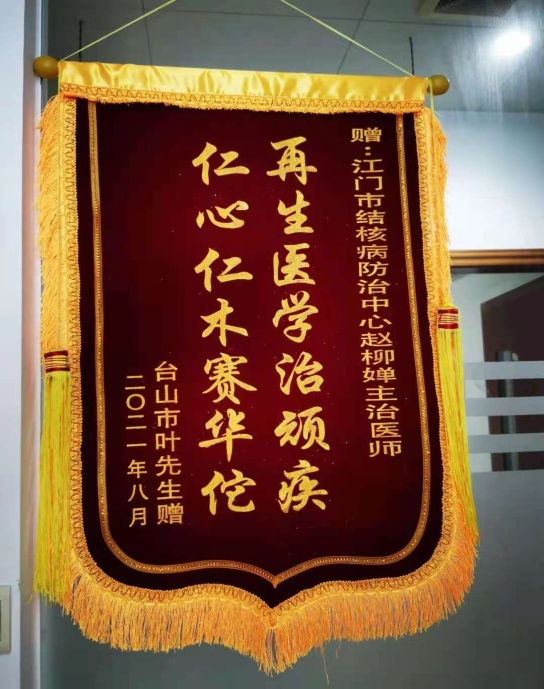 赠：江门市结核病防治中心赵柳婵主治医师
再生医学治顽疾
仁心仁木赛华佗
台山市叶先生赠
二〇二一年八月